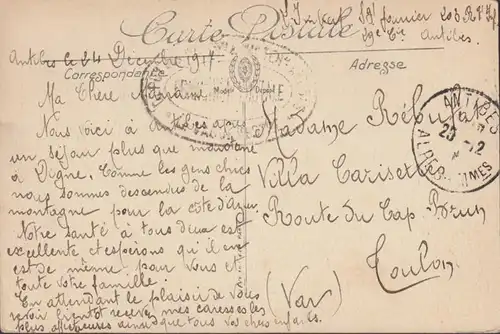 fourrier
Carte Postale
Antibes
Antibes le 24 Décembre 1917
Correspondance
Adresse
Ma Chère
Nous voici à Antibes après
un séjour plus que
à Digne. Comme les gens chics
nous sommes descendus de la
montagne pour la côte d'Azur
Notre santé à tous deux est
excellente, et espérons qu'il en
est de même par Vous et
toute votre famille.
En attendant le plaisir de vous
revoir bientôt recevez mes caresses les
plus affectueuses ainsi que tous vos chers enfants.
Madame Rébufat
Villa
Route du Cap Brun
Toulon
(Var)
ANTIBES
ALPES MMES